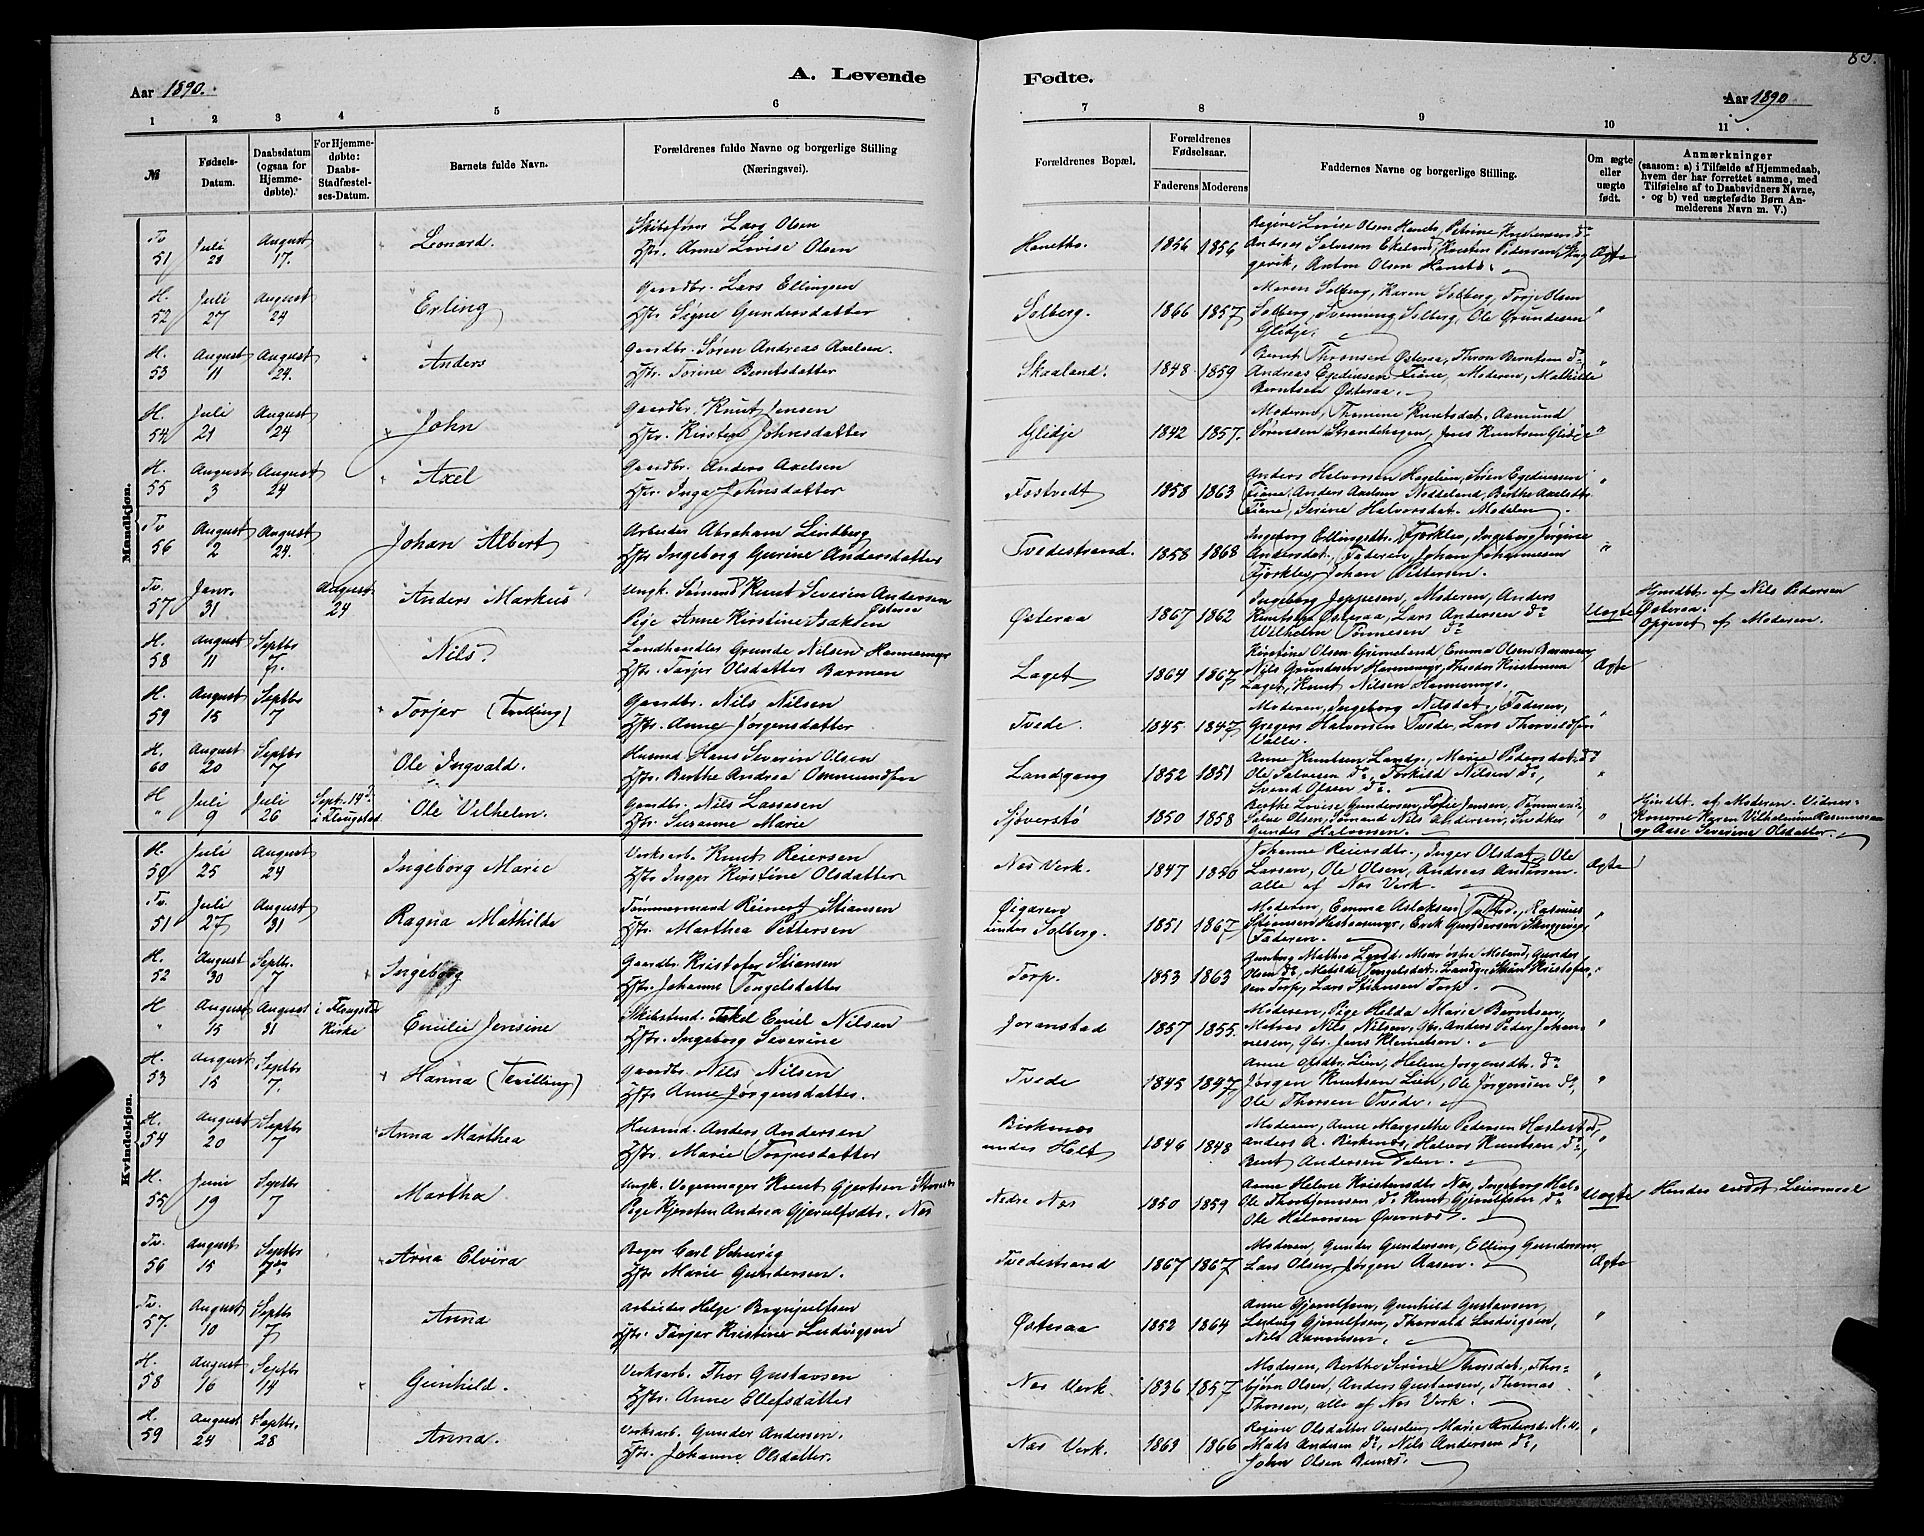 A. Levende
Fødte.
Aar 1890.
Aar 1890
1 2 3 4 5 6 7 8 9 10 11
№
Fødsels-
Datum.
Daabsdatum
(ogsaa for
Hjemme-
døbte).
For Hjemme-
døbte:
Daabs-
Stadfæstel-
ses-Datum.
Barnets fulde Navn.
Forældrenes fulde Navne og borgerlige Stilling
(Næringsvei).
Forældrenes Bopæl.
Forældrenes
Fødselsaar.
Faderens Moderens
Faddernes Navne og borgerlige Stilling.
Om ægte
eller
uægte
født.
Anmærkninger
(saasom: a) i Tilfælde af Hjemmedaab,
hvem der har forrettet samme, med
Tilføielse af to Daabsvidners Navne,
og b) ved uægtefødte Børn An-
melderens Navn m. V.)
Mandkjøn.
Tv 51 Juli 28 August 17. Leonard. Skibsfører Lars Olsen
Hstr. Anne Lovise Olsen
Hanetho. 1856 1856
Andreas Salvesen Ekeland, Karsten Pedersen
Anton Olsen
Ægte
H. 52 Juli 27 August 24 Erling Gaardbr. Lars Ellingsen
Hstr. Signe Gundersdatter
Solberg. 1866 1857
Maren Solberg, Karen Solberg, Torje Olsen
Solberg, Svenning Solberg, Ole Grundesen
Glidje.
"
H. 53 August 11 August 24. Anders Gaardbr. Søren Andreas Axelsen.
Hstr. Torine Berntsdatter
Skaaland. 1848 1859
Bernt Thronsen Østeraa, Thron Berntsen do
Andreas Egdiussen Fiane, Moderen, Mathilde
Berntsen Østeraa.
"
H. 54 Juli 21 August 24 John Gaardbr. Knut Jensen
Hstr. Kirsten Johnsdatter
Glidje 1842 1857.
Moderen, Thomine Knutsdat. Aamund
Sørensen Strandehagen, Jens Knutsen Glidje
"
H. 55 August 3 August 24 Axel Gaardbr. Anders Axelsen
Hstr. Inga Johnsdatter
Fostvedt 1858 1863
Anders Halvorsen Hagelien, Søren Egdiussen
Fiane, Anders Axelsen Noddeland, Berthe Axelsdtr.
Fiane, Serine Halvorsdat. Moelen
"
Tv 56 August 2 August 24. Johan Albert Arbeider Abraham Lindberg
Hstr Ingeborg Gurine Andersdatter
Tvedestrand. 1858 1868
Ingeborg Ellingsdtr. Fjorkley, Ingeborg Jørgine
Andersdat., Faderen, Johan Johannesen
Johan Pettersen.
"
Tv. 57 Janr. 31 August 24 Anders Markus Ungk. Sømand Knut Severin Andersen
Østeraa
Pige Anne Kirstine Isaksen
Østeraa 1867 1862
Ingeborg Jeppesen, Moderen, Anders
Knutsen Østeraa, Lars Andersen do
Wilhelm Tønnesen do
Uægte
Hjmdbt. af Nils Pedersen
Østeraa.
Opgivet af Moderen.
H. 58 August 11 Septbr 7. Nils. Landhandler Grunde Nilsen Hannemyr
Hstr. Torjer Olsdatter Barmen
Laget 1864 1867
Kirstine Olsen Gjemeland Emma Olsen Barmen,
Nils Grundesen Hannemyr, Theder Kristensen
Laget, Knut Nilsen Hannemyr.
Ægte
H. 59 August 15 Septbr 7 Torjer (Tvilling) Gaardbr. Nils Nilsen
Hstr. Anne Jørgensdatter
Tvede. 1845 1847
Moderen, Ingeborg Nilsdat., Faderen,
Gregers Halvorsen Tvede, Lars Thorvaldsen
Valle.
"
H. 60 August 20 Septbr 7 Ole Ingvald. Husmd Hans Severin Olsen
Hstr. Berthe Andrea Ommundsen
Landgang 1852 1851
Anne Knutsen Landg., Marie Pedersdat. do
Ole Salvesen do, Torkild Nilsen do,
Svend Olsen do.
"
H " Juli 9 Juli 26 Sept. 14d. i Flaugstad Ole Vilhelm. Gaardbr. Nils Lassesen
Hstr. Susanne Marie
Sjøverstø 1850 1858
Berthe Lovise Gundersen, Sofie Jensen, Tømmermd.
Salve Olsen, Sømand Nils Andersen, Snedker
Gunder Halvorsen.
"
Hjmdbt. af Moderen. Vidner:
Konerne Karen Vilhelmine Rasmussen
og Aase Severine Olsdatter.
Kvindekjøn.
H. 50 Juli 25 August 24 Ingeborg Marie Verksarb. Knut Reiersen
Hstr Inger Kirstine Olsdatter
Nes Verk. 1847 1850
Johanne Reiersdtr., Inger Olsdat, Ole
Larsen, Ole Olsen, Andreas Andersen.
alle af Nes Verk.
Ægte
Tv. 51 Juli 27 August 31 Ragna Mathilde Tømmermand Reinert Stiansen
Hstr. Marthea Pettersen
Øigaren
under Solberg. 1851 1867
Moderen, Emma Aslaksen
Faderen.
"
H. 52 August 30 Septbr. 7 Ingeborg Gaardbr. Kristofer Stiansen
Hstr. Johanne Tengelsdatter
Torp. 1853 1863
Lars Stiansen Torp.
"
H " August 15 August 31 i Flaugstad Kirke Emilie Jensine Skibstmd. Tekel Emil Nilsen
Hstr. Ingeborg Severine
Joranstad 1857 1855.
Moderen, Pige Helda Marie Berntsen,
Matros Nils Nilsen, Gbr. Anders Peder Johan-
nesen, Gbr. Jens Klemetsen.
"
H. 53 August 15 Septbr 7. Hanna (Tvilling) Gaardbr. Nils Nilsen
Hstr Anne Jørgensdatter.
Tvede 1845 1897
Anne Olsdtr. Lien, Helene Jørgensdt. do
Jørgen Knutsen Lien, Ole Jørgensen do,
Ole Thorsen Tvede.
"
H. 54 August 20 Septbr 7 Anna Marthea Husmd. Anders Andersen
Hstr. Marie Torjusdatter
Birkenes
under Holt 1846 1848
Moderen, Anne Margrethe Pedersen
Anders A. Birkenes, Halvor Knutsen do,
Bent Andersen Dalen.
"
H. 55 Juni 19 Septbr 7 Martha Ungk. Vognmager Knut Gjertsen
Pige Kjersten Andrea Gjerulfsdtr. Nes
Nedre Nes 1860 1859
Anne Helene Kristensdtr Nes, Ingeborg
Ole Thorbjørnsen do Knut Gjerulfsen do
Ole Halvorsen Øvernes.
Uægte
Hendes andet Leiermaal
Tv. 56 August 15 Septbr 7de Anna Elvira Bager Carl Schurig
Hstr Marie Gundersen.
Tvedestrand 1867 1867
Moderen, Gunder Gundersen, Elling Gundersen
Lars Olsen, Jørgen Aasen.
Ægte
Tv. 57. August 10 Septbr 7 Anna Arbeider Helje Brynjulfsen
Hstr. Torjer Kristine Ludvigsen
Østeraa 1852 1864
Anne Gjerulfsen, Gunhild Gustavsen,
Ludvig Gjerulfsen, Thorvald Ludvigsen,
Nils Aanonsen.
"
H. 58 August 16 Septbr 14 Gunhild. Verksarb. Thor Gustavsen
Hstr. Anne Ellefsdatter
Nes Verk. 1836 1857
Moderen, Berthe Serine Thorsdat. Thor-
bjørn Olsen, Anders Gustavsen, Thomas
Thorsen, alle af Nes Verk.
"
H. 59 August 24 Septbr. 28 Anna. Verksarb. Gunder Andersen.
Hstr. Johanne Olsdatter.
Nes Verk. 1863 1866
Regine Olsdatter Marie Andersd. N. V.
Mads Andersen do, Nils Andersen do,
John Olsen
"